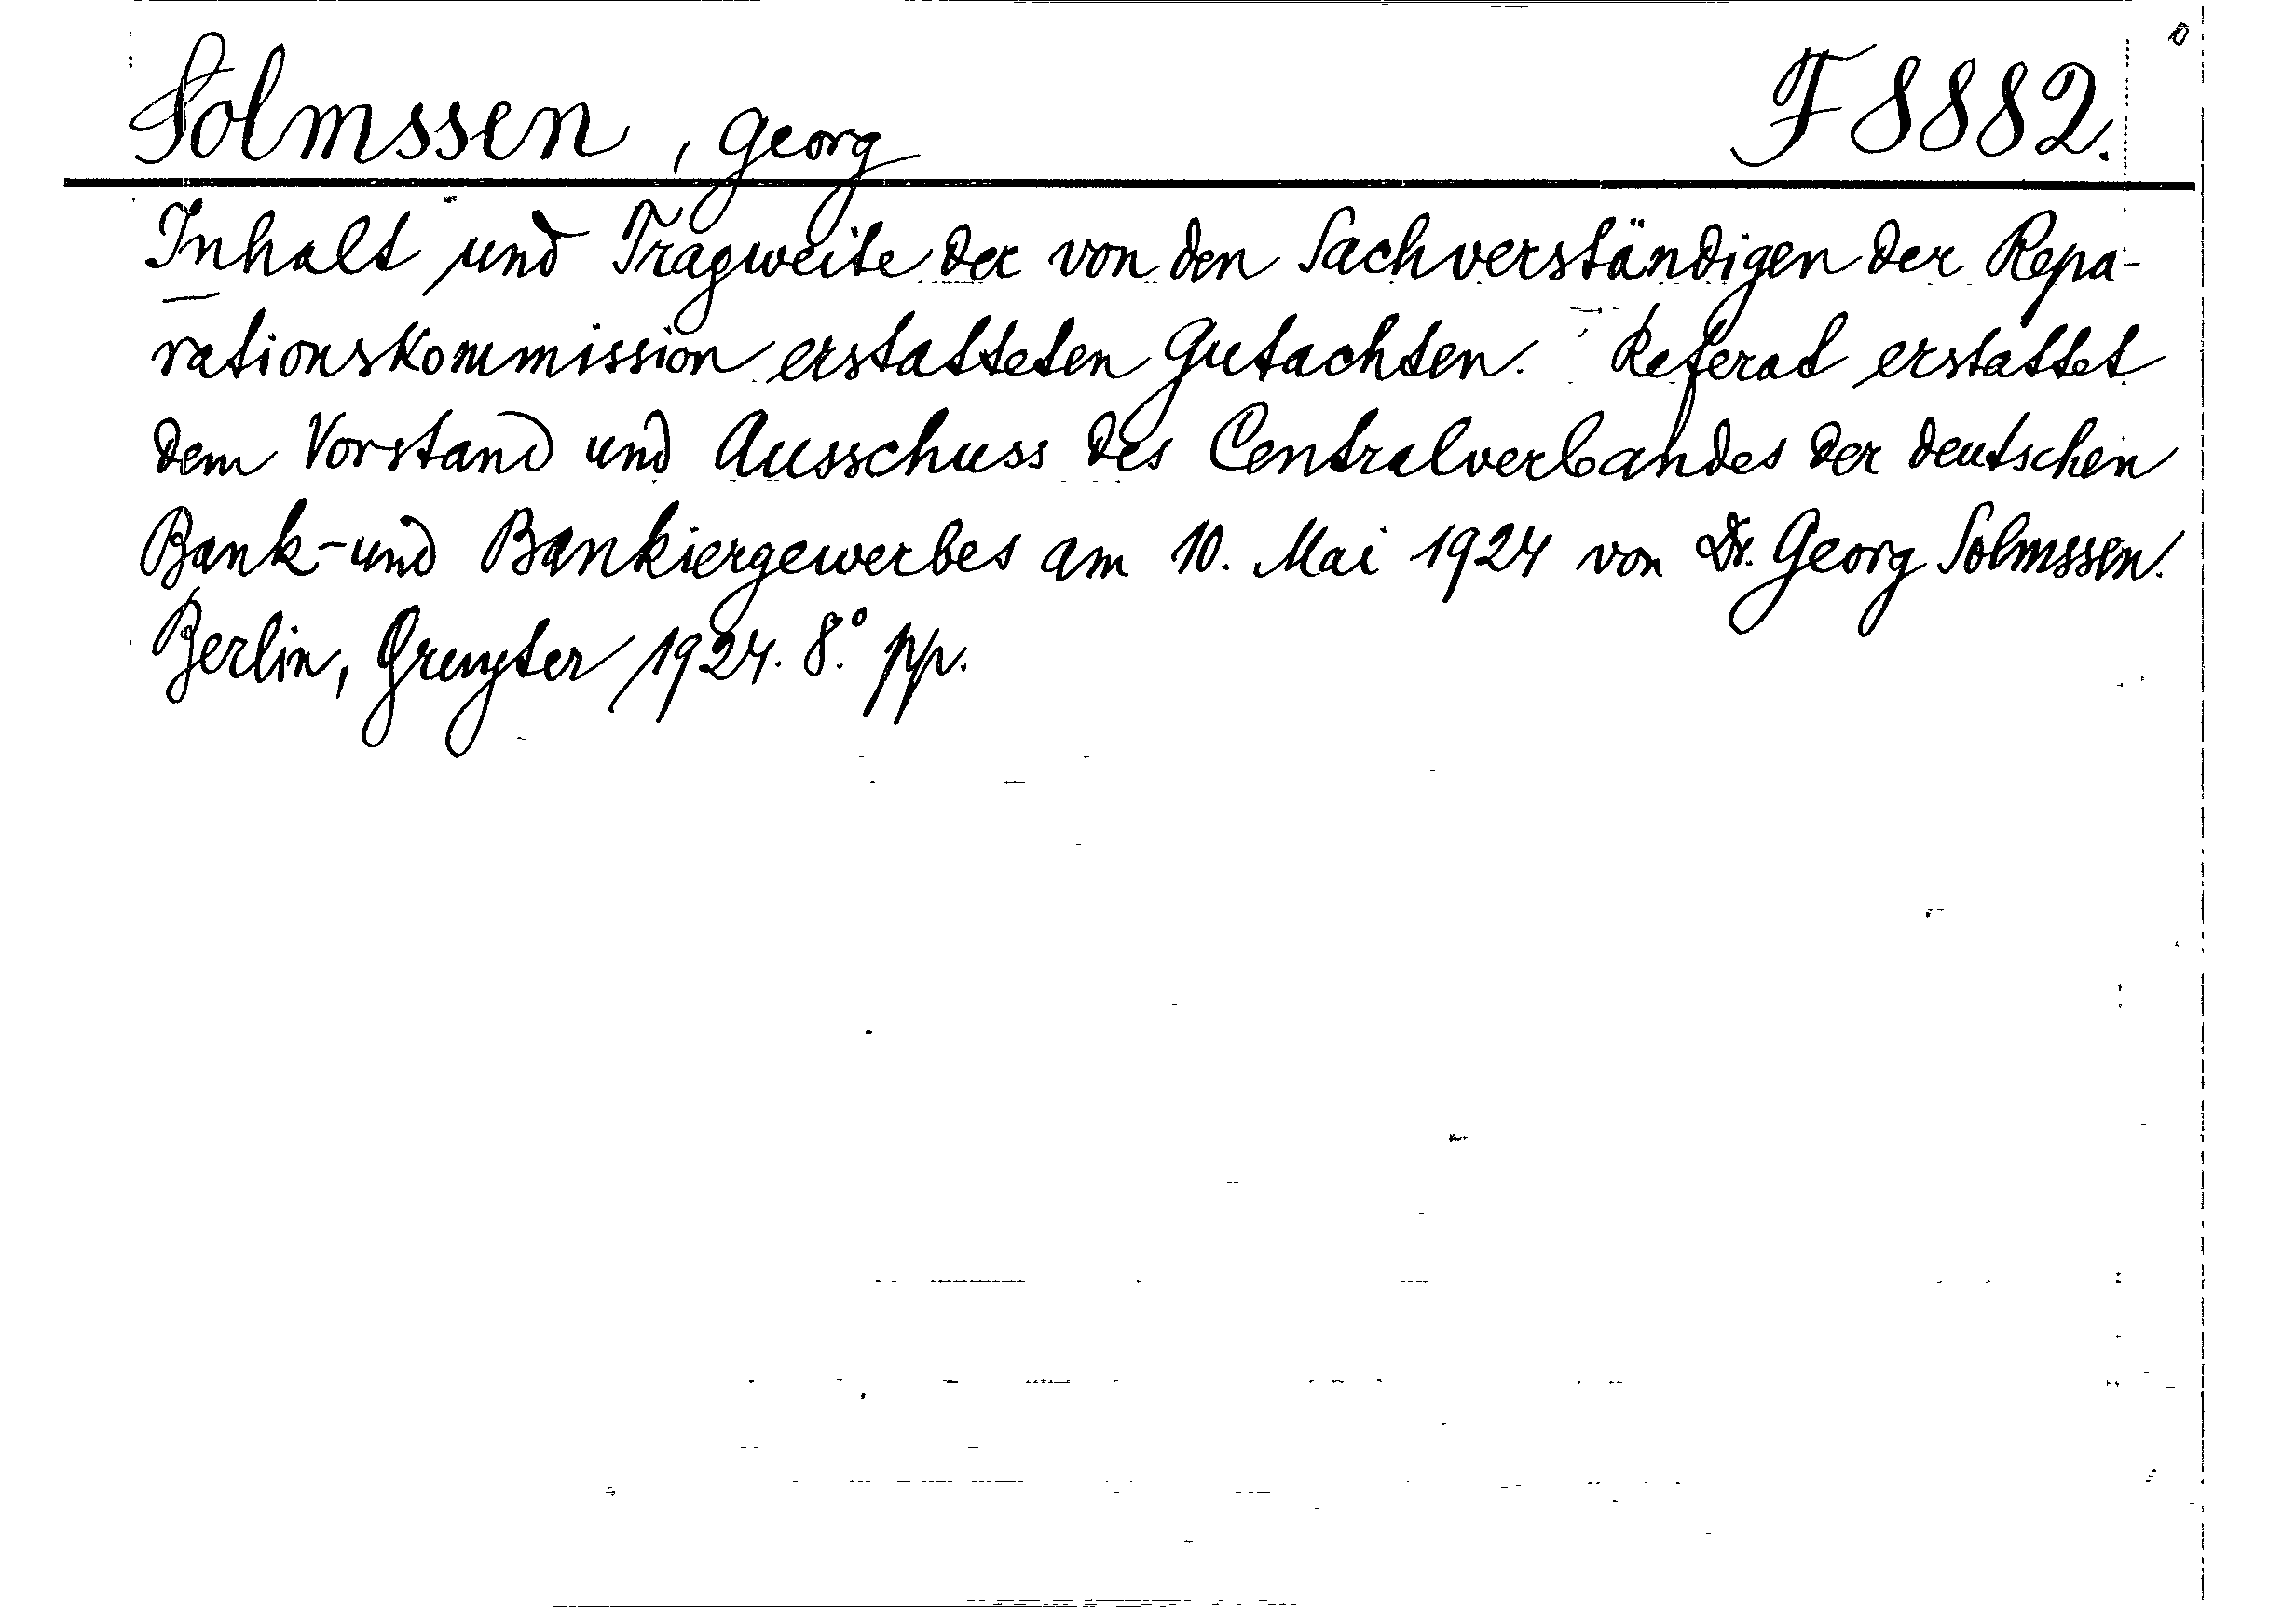 Solmssen, Georg F 8882.
Inhalt und Tragweite der von den Sachverständigen der Repa-
rationskommission erstatteten Gutachten. Referat erstattet
dem Vorstand und Ausschuss des Centralverbandes der deutschen
Bank- und Bankiergewerbes am 10. Mai 1924 von Dr. Georg Solmssen.
Berlin, Gruyter 1924. 8.° pp.